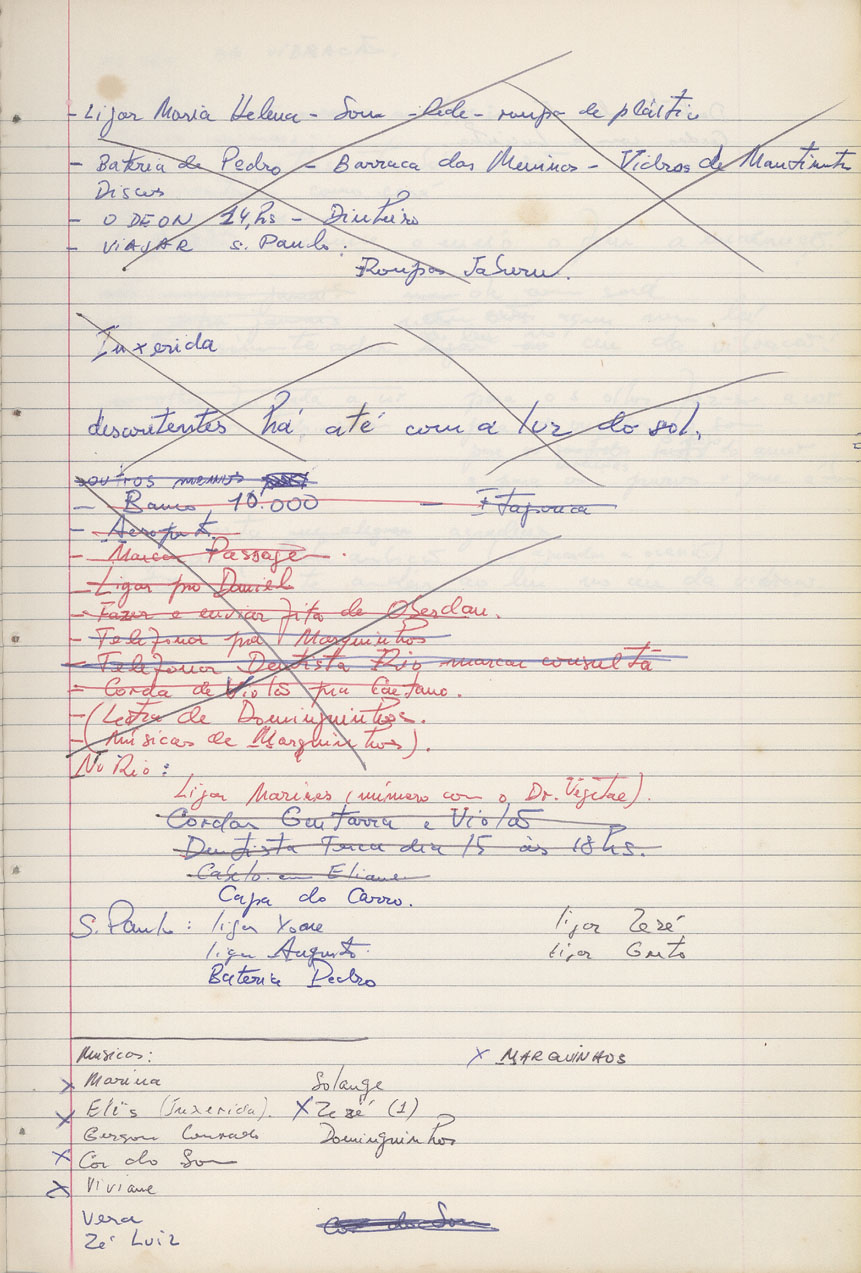 - Ligar Maria Helena - Som - Rede - roupa de plástico
- Bateria de Pedro - Barraca dos Meninos - Vidros de Mantimento
Discos
- ODEON 14,hs - Dinheiro
- VIAJAR S. Paulo.
Roupas
Inxerida
descontentes há, até com a luz do sol,
outros menos
- Banco 10.000 - Itapuca
- Aeroporto.
- Marcar Passagē.
- Ligar pro Daniel
- Fazer e enviar fita de Oberdan.
- Telefonar pra Marquinhos
- Telefonar Dentista Rio marcar consulta
- Corda de Violão pra Caetano.
- (Letra de Dominguinhos.
- (Músicas de Marquinhos).
No Rio:
Ligar Marines (número com o Dr. Vegetae).
Cordas Guitarra e Violão
Dentista Terca dia 15 às 18hs.
Eliane
Capa do Carro.
S. Paulo: ligar Yone ligar Zezé
ligar Augusto. ligar Guto
Bateria Pedro
Musicas: x MARQUINHOS
x Marina Solange
x Elis (Inxerida). x Zezé (1)
Gerson Conrado Dominguinhos
x Côr do Som
x Viviane
Vera Cor do Som
Zé Luiz